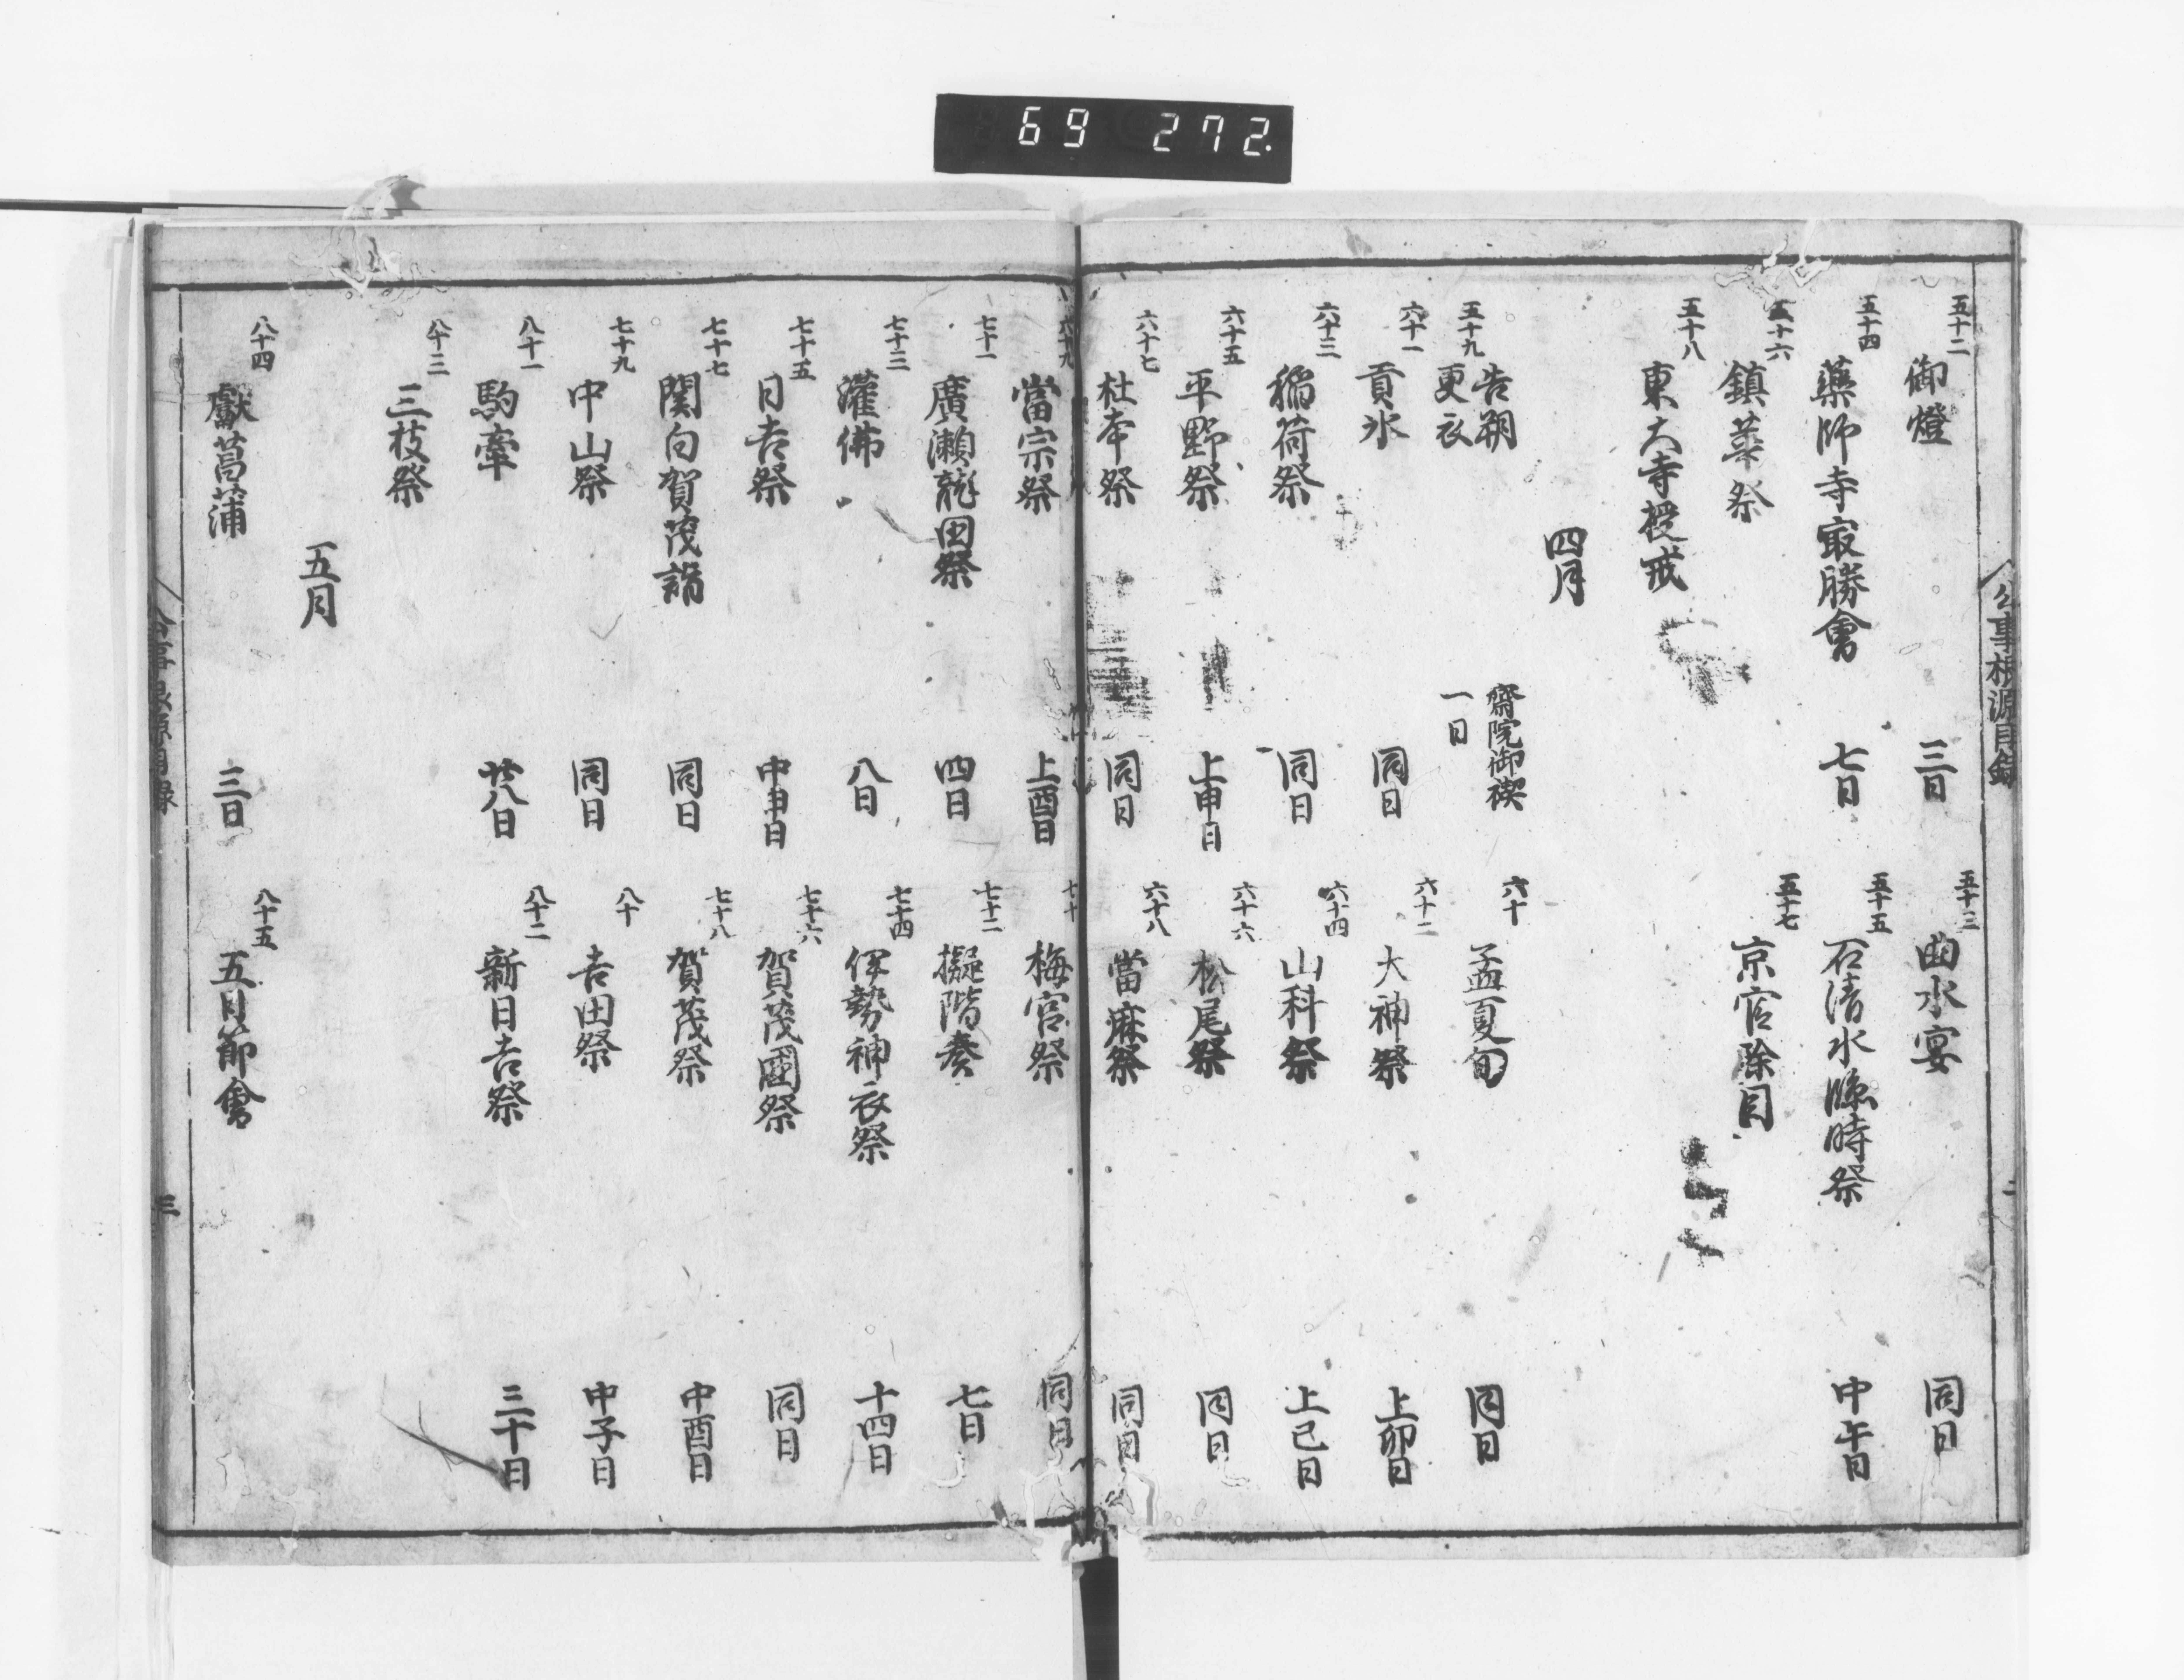 69 272.
公事根源目録
五十二 御燈 三日 五十三 曲水宴 同日
五十四 藥師寺㝡勝會 七日 五十五 石清水臨時祭 中午日
五十六 鎮華祭 五十七 京官除目
五十八 東大寺授戒
四月
五十九 告朔 更衣 齋院御禊 一日 六十 孟夏旬 同日
六十一 貢氷 同日 六十二 大神祭 上卯日
六十三 稲荷祭 同日 六十四 山科祭 上巳日
六十五 平野祭 上申日 六十六 松尾祭 同日
六十七 杜本祭 同日 六十八 當麻祭 同日
六十九 當宗祭 上酉日 七十 梅宮祭 同日
七十一 廣瀬龍田祭 四日 七十二 擬階奏 七日
七十三 灌佛 八日 七十四 伊勢神衣祭 十四日
七十五 日吉祭 中申日 七十六 賀茂國祭 同日
七十七 関白賀茂詣 同日 七十八 賀茂祭 中酉日
七十九 中山祭 同日 八十 吉田祭 中子日
八十一 駒牽 廿八日 八十二 新日吉祭 三十日
八十三 三枝祭
五月
八十四 獻菖蒲 三日 八十五 五日節會
公事根源目録 三